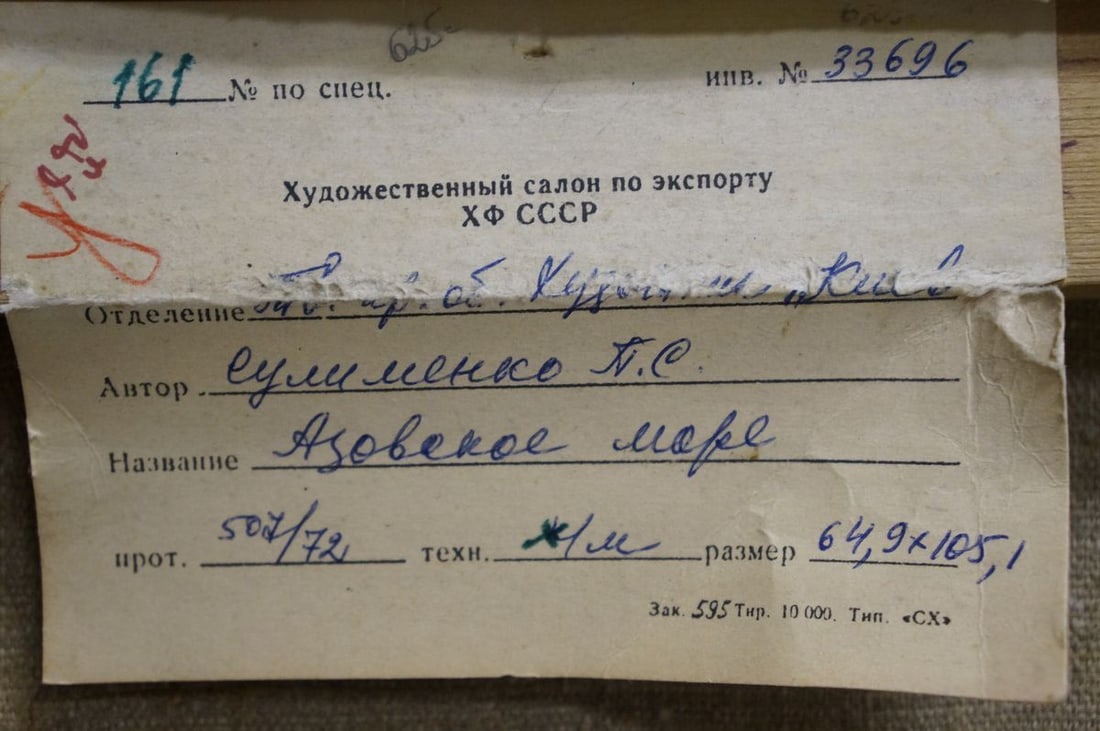 625
161 № по спец. инв. № 33696
Художественный салон по экспорту
ХФ СССР
Отделение
Автор Сулименко П.С.
Название Азовское море
прот. 507/72 техн. х/м размер 64,9х105,1
Зак. 595 Тир. 10 000. Тип. «СХ»